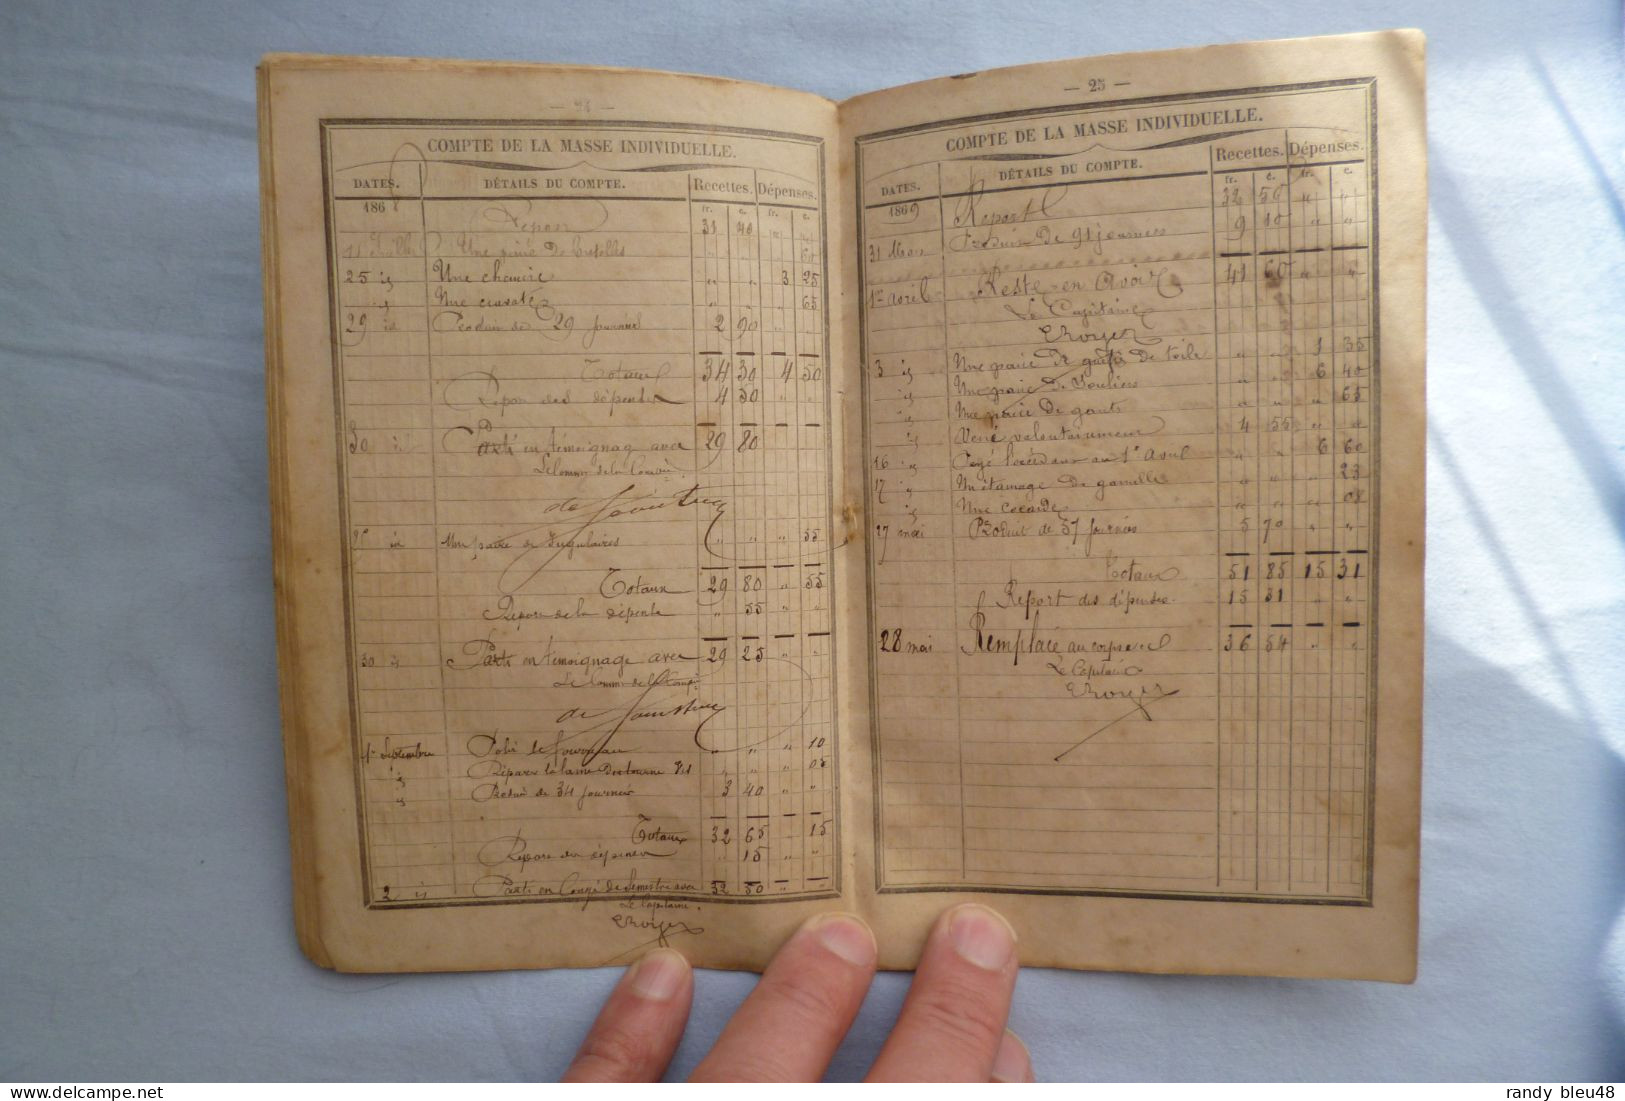 — 24 —
COMPTE DE LA MASSE INDIVIDUELLE.
DATES. DÉTAILS DU COMPTE. Recettes. Dépenses.
fr. c. fr. c.
1868 Report 31 40 " "
Une paire de Bretelles " " " 60
25 id Une chemise " " 3 25
id Une cravate " " " 65
29 id Produit de 29 journées 2 90 " "
Totaux 34 30 4 50
Report des dépenses 4 50 " "
30 id Parti en témoignage avec 29 80
Le Comm de la Comp
Une paire de Jugulaires " " " 55
Totaux 29 80 " 55
Report de la dépense " 55 " "
30 id Parti en témoignage avec 29 25 " "
Le Comm de la Comp
1er Septembre " " " 10
id " " " 05
id Produit de 34 journées 3 40 " "
Totaux 32 65 " 15
Report des dépenses " 15 " "
2 id Parti en Congé de Semestre avec 32 50 " "
Le Capitaine
— 25 —
COMPTE DE LA MASSE INDIVIDUELLE.
DATES. DÉTAILS DU COMPTE. Recettes. Dépenses.
fr. c. fr. c.
1869 Report 32 50 " "
31 Mars Produit de 91 journées 9 10 " "
1er avril Reste en Avoir 41 60 " "
Le Capitaine
3 id Une paire de guêtres de toile " " 1 35
id Une paire de Souliers " " 6 40
id Une paire de gants " " " 65
id Versé volontairement 4 55 " "
16 id Payé l'excédant au 1er Avril " " 6 60
17 id Un étamage de gamelle " " " 23
id Une cocarde " " " 08
27 mai Produit de 57 journées 5 70 " "
Totaux 51 85 15 31
Report des dépenses. 15 31 " "
28 mai Remplacé au corps 36 54 " "
Le Capitaine
randy bleu48